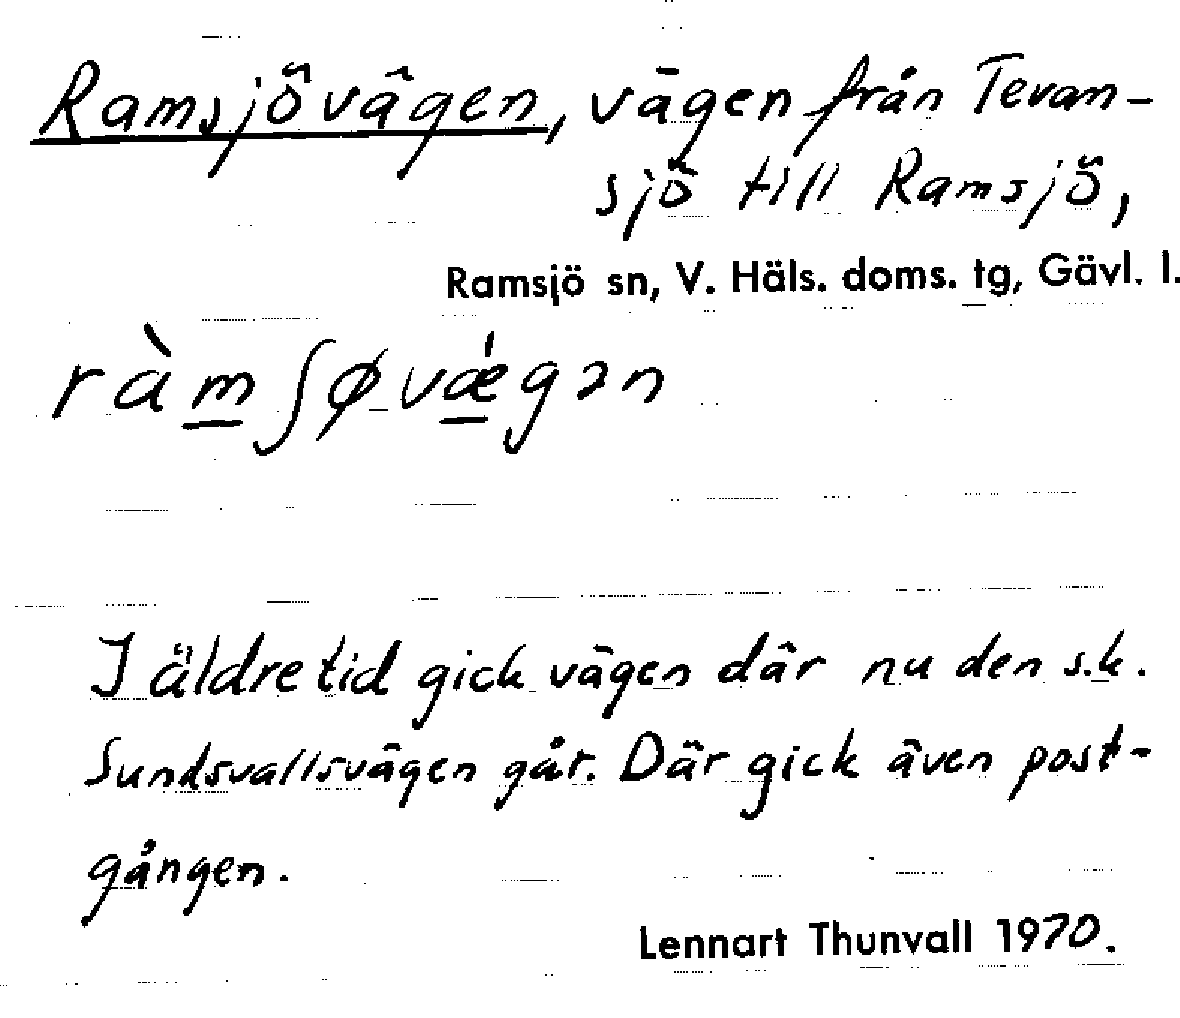 Ramsjövägen, vägen från Tevan-
sjö till Ramsjö,
Ramsjö sn, V. Häls. doms. tg, Gävl. l.
ràm̲ʃøvǽ̲gən
I äldre tid gick vägen där nu den s.k.
Sundsvallsvägen går. Där gick även post-
gången.
Lennart Thunvall 1970.